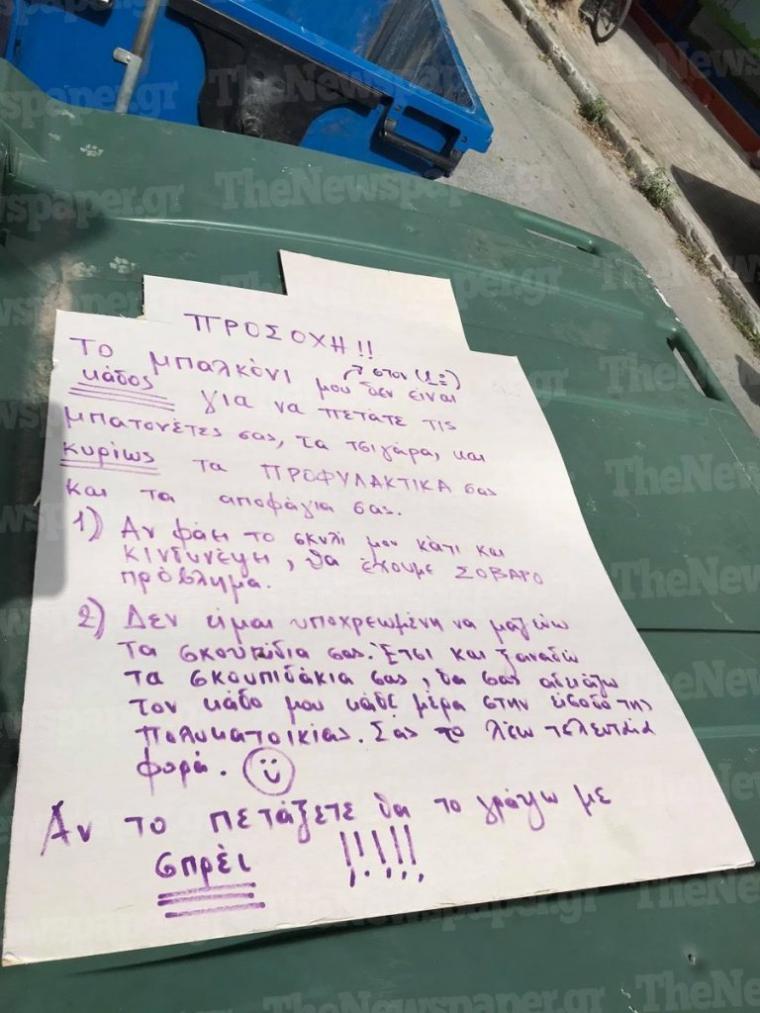 ΠΡΟΣΟΧΗ!!
Το μπαλκόνι μου δεν είναι
→ στον (1ο)
κάδος για να πετάτε τις
μπατονέτες σας, τα τσιγάρα, και
κυρίως τα ΠΡΟΦΥΛΑΚΤΙΚΑ σας
και τα αποφάγια σας.
1) Αν φάει το σκυλί μου κάτι και
κινδυνέψει, θα έχουμε ΣΟΒΑΡΟ
πρόβλημα.
2) Δεν είμαι υποχρεωμένη να μαζεύω
τα σκουπίδια σας. Έτσι και ξαναδώ
τα σκουπιδάκια σας, θα σας αδειάζω
τον κάδο μου κάθε μέρα στην είσοδο της
πολυκατοικίας. Σας το λέω τελευταία
φορά.
Αν το πετάξετε θα το γράψω με
σπρέι !!!!!
TheNewspaper.gr